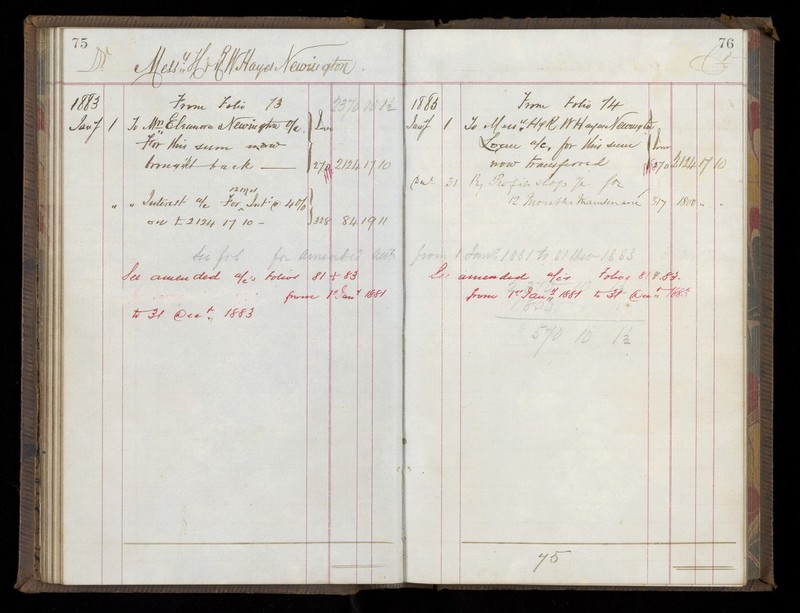 75
Dr Messrs H & R W Hayes Newington.
1883 From Folio 73 2370 10 1½
Jany 1 To Mrs Eleanora Newington a/c
For this sum now
brought back — 270 2124 17 10
" " Interest a/c For 12 mos Int @ 4 0/0
on £2124 17 10 — 328 84 19 11
See fol for amended accts
See amended a/cs folios 81 & 83
from 1st Jany 1881
to 31 Decr 1883
76
Cr
1883 From Folio 74
Jany 1 To Messrs H & R W Hayes Newington
Loan a/c, for this sum
now transferred 270 2124 17 10
Decr 31 By Profit & Loss for
12 Months Maintenance 317 1800 " "
from 1 Jany 1881 to 31 Decr 1883
See amended a/cs folios 81 & 83.
from 1st Jany 1881 to 31 Decr 1883
1800
570 10 1½
75